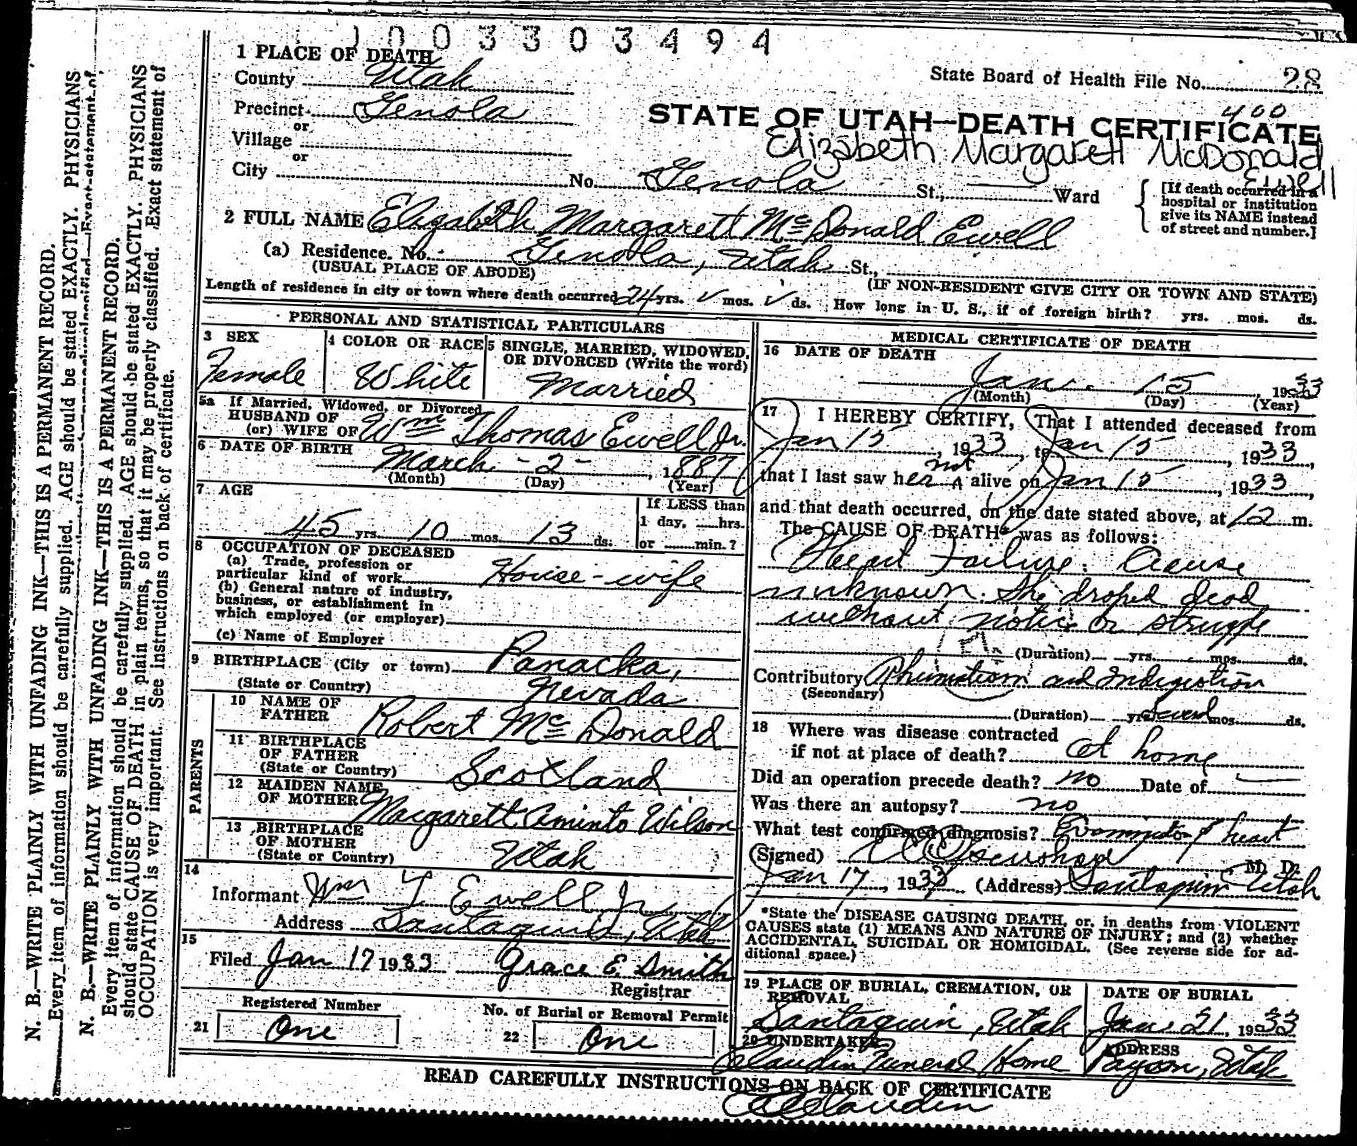 1003303494
1 PLACE OF DEATH
County Utah
State Board of Health File No. 28
Precinct Genola
400
STATE OF UTAH—DEATH CERTIFICATE
or
Village
Elizabeth Margarett McDonald
Ewell
or
City No. Genola St., Ward
[If death occurred in a
hospital or institution
give its NAME instead
of street and number.]
2 FULL NAME Elizabeth Margarett Mc Donald Ewell
(a) Residence. No. Genola, Utah St.,
(USUAL PLACE OF ABODE)
(IF NON-RESIDENT GIVE CITY OR TOWN AND STATE)
Length of residence in city or town where death occurred 24 yrs. mos. ds. How long in U. S., if of foreign birth? yrs. mos. ds.
PERSONAL AND STATISTICAL PARTICULARS
3 SEX
Female
4 COLOR OR RACE
White
5 SINGLE, MARRIED, WIDOWED,
OR DIVORCED (Write the word)
Married
5a If Married, Widowed, or Divorced
HUSBAND OF
(or) WIFE OF Wm Thomas Ewell Jr.
6 DATE OF BIRTH
March - 2 - , 1887
(Month) (Day) (Year)
7 AGE
45 yrs. 10 mos. 13 ds.
If LESS than
1 day, hrs.
or min.?
8 OCCUPATION OF DECEASED
(a) Trade, profession or
particular kind of work House-wife
(b) General nature of industry,
business, or establishment in
which employed (or employer)
(c) Name of Employer
9 BIRTHPLACE (City or town) Panacka,
(State or Country) Nevada
PARENTS
10 NAME OF
FATHER Robert Mc Donald
11 BIRTHPLACE
OF FATHER
(State or Country) Scotland
12 MAIDEN NAME
OF MOTHER Margarett Aminto Wilson
13 BIRTHPLACE
OF MOTHER
(State or Country) Utah
14
Informant Wm T Ewell Jr.
Address Santaquin, Utah
15
Filed Jan 17 1933 Grace E. Smith
Registrar
Registered Number
21 One
No. of Burial or Removal Permit
22 One
MEDICAL CERTIFICATE OF DEATH
16 DATE OF DEATH
Jan. 15 1933
(Month) (Day) (Year)
17 I HEREBY CERTIFY, That I attended deceased from
Jan 15, 1933, to Jan 15, 1933,
that I last saw her not alive on Jan 15, 1933,
and that death occurred, on the date stated above, at 12 m.
The CAUSE OF DEATH* was as follows:
Heart Failure. Cause
unknown. She droped dead
without notice or struggle
(Duration) yrs. mos. ds.
Contributory Rhumatism and Indigestion
(Secondary)
(Duration) yrs. Several mos. ds.
18 Where was disease contracted
if not at place of death? at home
Did an operation precede death? no Date of
Was there an autopsy? no
What test confirmed diagnosis? Examination of heart
(Signed) M. D.
Jan 17, 1933 (Address) Santaquin Utah
*State the DISEASE CAUSING DEATH, or, in deaths from VIOLENT
CAUSES state (1) MEANS AND NATURE OF INJURY; and (2) whether
ACCIDENTAL, SUICIDAL OR HOMICIDAL. (See reverse side for ad-
ditional space.)
19 PLACE OF BURIAL, CREMATION, OR
REMOVAL
Santaquin, Utah
DATE OF BURIAL
Jan. 21 1933
20 UNDERTAKER
Claudin Funeral Home
ADDRESS
Payson, Utah
READ CAREFULLY INSTRUCTIONS ON BACK OF CERTIFICATE
Claudin
N. B.—WRITE PLAINLY WITH UNFADING INK—THIS IS A PERMANENT RECORD.
Every item of information should be carefully supplied. AGE should be stated EXACTLY. PHYSICIANS
N. B.—WRITE PLAINLY WITH UNFADING INK—THIS IS A PERMANENT RECORD.
Every item of information should be carefully supplied. AGE should be stated EXACTLY. PHYSICIANS
should state CAUSE OF DEATH in plain terms, so that it may be properly classified. Exact statement of
OCCUPATION is very important. See instructions on back of certificate.